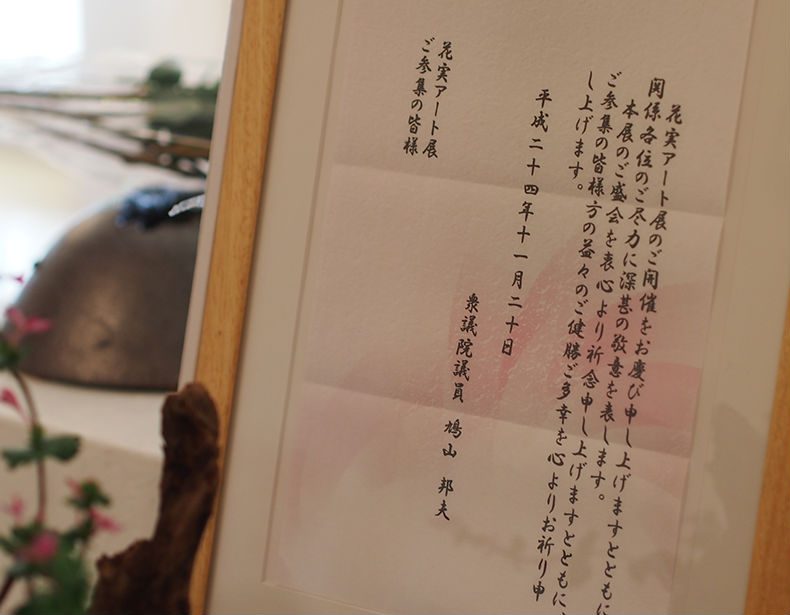 花実アート展のご開催をお慶び申し上げますとともに
関係各位のご尽力に深甚の敬意を表します。
本展のご盛会を衷心より祈念申し上げますとともに、
ご参集の皆様方の益々のご健勝ご多幸を心よりお祈り申
し上げます。
平成二十四年十一月二十日
衆議院議員 鳩山 邦夫
花実アート展
ご参集の皆様